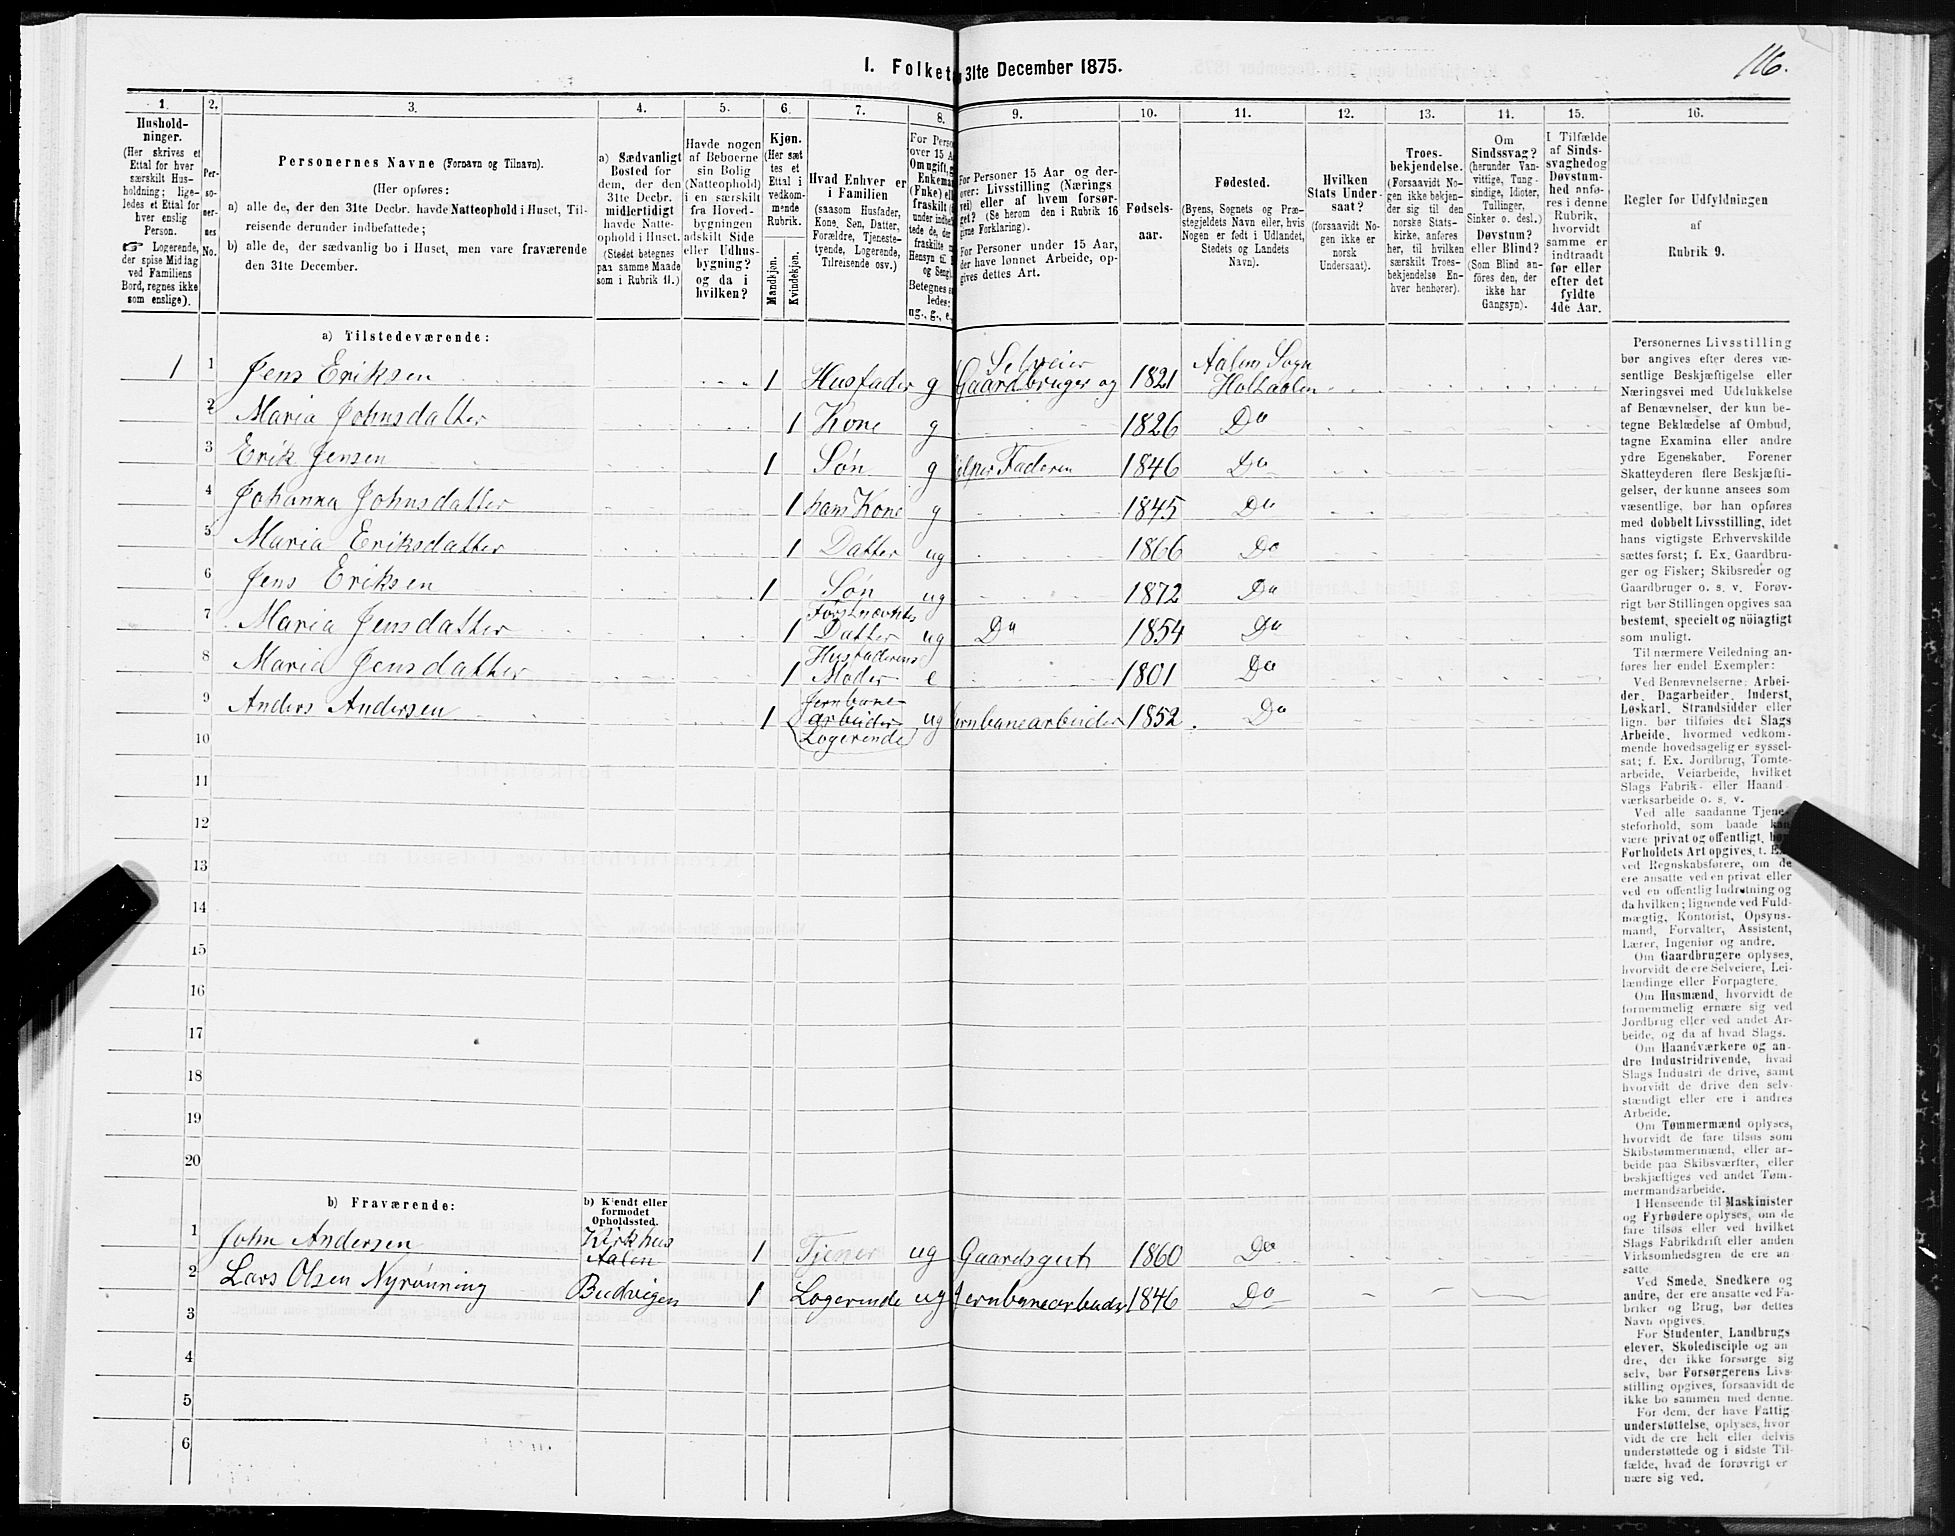 116.
1. Folket 31te December 1875.
1. 2. 3. 4. 5. 6. 7. 8. 9. 10. 11. 12. 13. 14. 15. 16.
Hushold-
ninger.
(Her skrives et
Ettal for hver
særskilt Hus-
holdning; lige-
ledes et Ettal for
hver enslig
Person.
☞ Logerende,
der spise Middag
ved Familiens
Bord, regnes ikke
som enslige).
Per-
so-
ner-
nes
No.
Personernes Navne (Fornavn og Tilnavn).
(Her opføres:
a) alle de, der den 31te Decbr. havde Natteophold i Huset, Til-
reisende derunder indbefattede;
b) alle de, der sædvanlig bo i Huset, men vare fraværende
den 31te December.
a) Sædvanligt
Bosted for
dem, der den
31te Decbr.
midlertidigt
havde Natte-
ophold i Huset.
(Stedet betegnes
paa samme Maade
som i Rubrik 11.)
Havde nogen
af Beboerne
sin Bolig
(Natteophold)
i en særskilt
fra Hoved-
bygningen
adskilt Side
eller Udhus-
bygning?
og da i
hvilken?
Kjøn.
(Her sæt
tes et
Ettal i
vedkom-
mende
Rubrik.
Mandkjøn.
Kvindekjøn.
Hvad Enhver er
i Familien
(saasom Husfader,
Kone, Søn, Datter,
Forældre, Tjeneste-
tyende, Logerende,
Tilreisende osv.)
For Perso
over 15 A
Om ugift, g
Enkema
(Fnke) ell
fraskilt
under indbe
tede de, de
fraskilte
Hensyn til
og Seng
Betegnes s
ledes:
ug., g., e.
For Personer 15 Aar og der-
over: Livsstilling (Nærings
vei) eller af hvem forsør-
get? (Se herom den i Rubrik 16
givne Forklaring).
For Personer under 15 Aar,
der have lønnet Arbeide, op-
gives dettes Art.
Fødsels-
aar.
Fødested.
(Byens, Sognets og Præ-
stegjeldets Navn eller, hvis
Nogen er født i Udlandet,
Stedets og Landets
Navn).
Hvilken
Stats Under-
saat?
(forsaavidt No-
gen ikke er
norsk
Undersaat).
Troes-
bekjendelse.
(Forsaavidt No-
gen ikke bekjen-
der sig til den
norske Stats-
kirke, anføres
her, til hvilken
særskilt Troes-
bekjendelse En-
hver henhører).
Om
Sindssvag?
(herunder Van-
vittige, Tung-
sindige, Idioter,
Tullinger,
Sinker o. desl.)
Døvstum?
eller Blind?
(Som Blind an-
føres den, der
ikke har
Gangsyn).
I Tilfælde
af Sinds-
svaghed og
Døvstum-
hed anfø-
res i denne
Rubrik,
hvorvidt
samme er
indtraadt
før eller
efter det
fyldte
4de Aar.
Regler for Udfyldningen
af
Rubrik 9.
a) Tilstedeværende:
1 1 Jens Eriksen 1 Husfader g Selveier Gaardbruger og 1821 Aalen Sogn Holtaalen
2 Maria Johnsdatter 1 Kone g 1826 Do
3 Erik Jensen 1 Søn g Faderen 1846 Do
4 Johanna Johnsdatter 1 hans Kone g 1845 Do
5 Maria Eriksdatter 1 Datter ug 1866 Do
6 Jens Eriksen 1 Søn ug 1872 Do
7 Maria Jensdatter 1 Førstnævntes Datter ug Do 1854 Do
8 Maria Jensdatter 1 Husfaderens Moder e 1801 Do
9 Anders Andersen 1 Jernbane arbeider (Logerende) ug Jernbanearbeider 1852. Do
10
11
12
13
14
15
16
17
18
19
20
b) Fraværende:
b) Kjendt eller
formodet
Opholdssted.
1 John Andersen Kirkhus Aalen 1 Tjener ug Gaardsgut 1860 Do
2 Lars Olsen Nyrønning Budvigen 1 Logerende ug Jernbanearbeider 1846 Do
3
4
5
6
Personernes Livsstilling
bør angives efter deres væ-
sentlige Beskjæftigelse eller
Næringsvei med Udelukkelse
af Benævnelser, der kun be-
tegne Beklædelse af Ombud,
tagne Examina eller andre
ydre Egenskaber. Forener
Skatteyderen flere Beskjæfti-
gelser, der kunne ansees som
væsentlige, bør han opføres
med dobbelt Livsstilling, idet
hans vigtigste Erhvervskilde
sættes først; f. Ex. Gaardbru-
ger og Fisker; Skibsreder og
Gaardbruger o. s. v. Forøv-
rigt bør Stillingen opgives saa
bestemt, specielt og nøiagtigt
som muligt.
Til nærmere Veiledning an-
føres her endel Exempler:
Ved Benævnelserne: Arbei-
der, Dagarbeider, Inderst,
Løskarl, Strandsidder eller
lign. bør tilføies det Slags
Arbeide, hvormed vedkom-
mende hovedsagelig er syssel-
sat; f. Ex. Jordbrug, Tomte-
arbeide, Veiarbeide, hvilket
Slags Fabrik- eller Haand-
værksarbeide o. s. v.
Ved alle saadanne Tjene-
steforhold, som baade kan
være privat og offentligt, bør
Forholdets Art opgives, t. Ex.
ved Regnskabsførere, om de
ere ansatte ved en privat eller
ved en offentlig Indretning og
da hvilken; lignende ved Fuld-
mægtig, Kontorist, Opsyns-
mand, Forvalter, Assistent,
Lærer, Ingeniør og andre.
Om Gaardbrugere oplyses,
hvorvidt de ere Selveiere, Lei-
lændinge eller Forpagtere.
Om Husmænd, hvorvidt de
fornemmelig ernære sig ved
Jordbrug eller ved andet Ar-
beide, og da af hvad Slags.
Om Haandværkere og an-
dre Industridrivende, hvad
Slags Industri de drive, samt
hvorvidt de drive den selv-
stændigt eller ere i andres
Arbeide.
Om Tømmermænd oplyses,
hvorvidt de fare tilsøs som
Skibstømmermænd, eller ar-
beide paa Skibsværfter, eller
beskjæftiges ved andet Tøm-
mermandsarbeide.
I Henseende til Maskinister
og Fyrbødere oplyses, om de
fare tilsøs eller ved hvilket
Slags Fabrikdrift eller anden
Virksomhedsgren de ere an-
satte
Ved Smede, Snedkere og
andre, der ere ansatte ved Fa-
briker og Brug, bør dettes
Navn opgives.
For Studenter, Landbrugs
elever, Skoledisciple og an
dre, der ikke forsørge sig
selv, bør Forsørgerens Livs-
stilling opgives, forsaavidt de
ikke bo sammen med denne.
For dem, der have Fattig
understøttelse, oplyses, hvor
vidt de ere helt eller delvis
understøttede og i sidste Til-
fælde, hvad de forøvrigt er
nære sig ved.